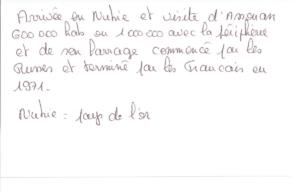 Arrivée en Nubie et visite d'Assouan
600 000 hab ou 1 000 000 avec la périphérie
et de son barrage commencé par les
Russes et terminé par les Francais en
1971.
Nubie : pays de l'or